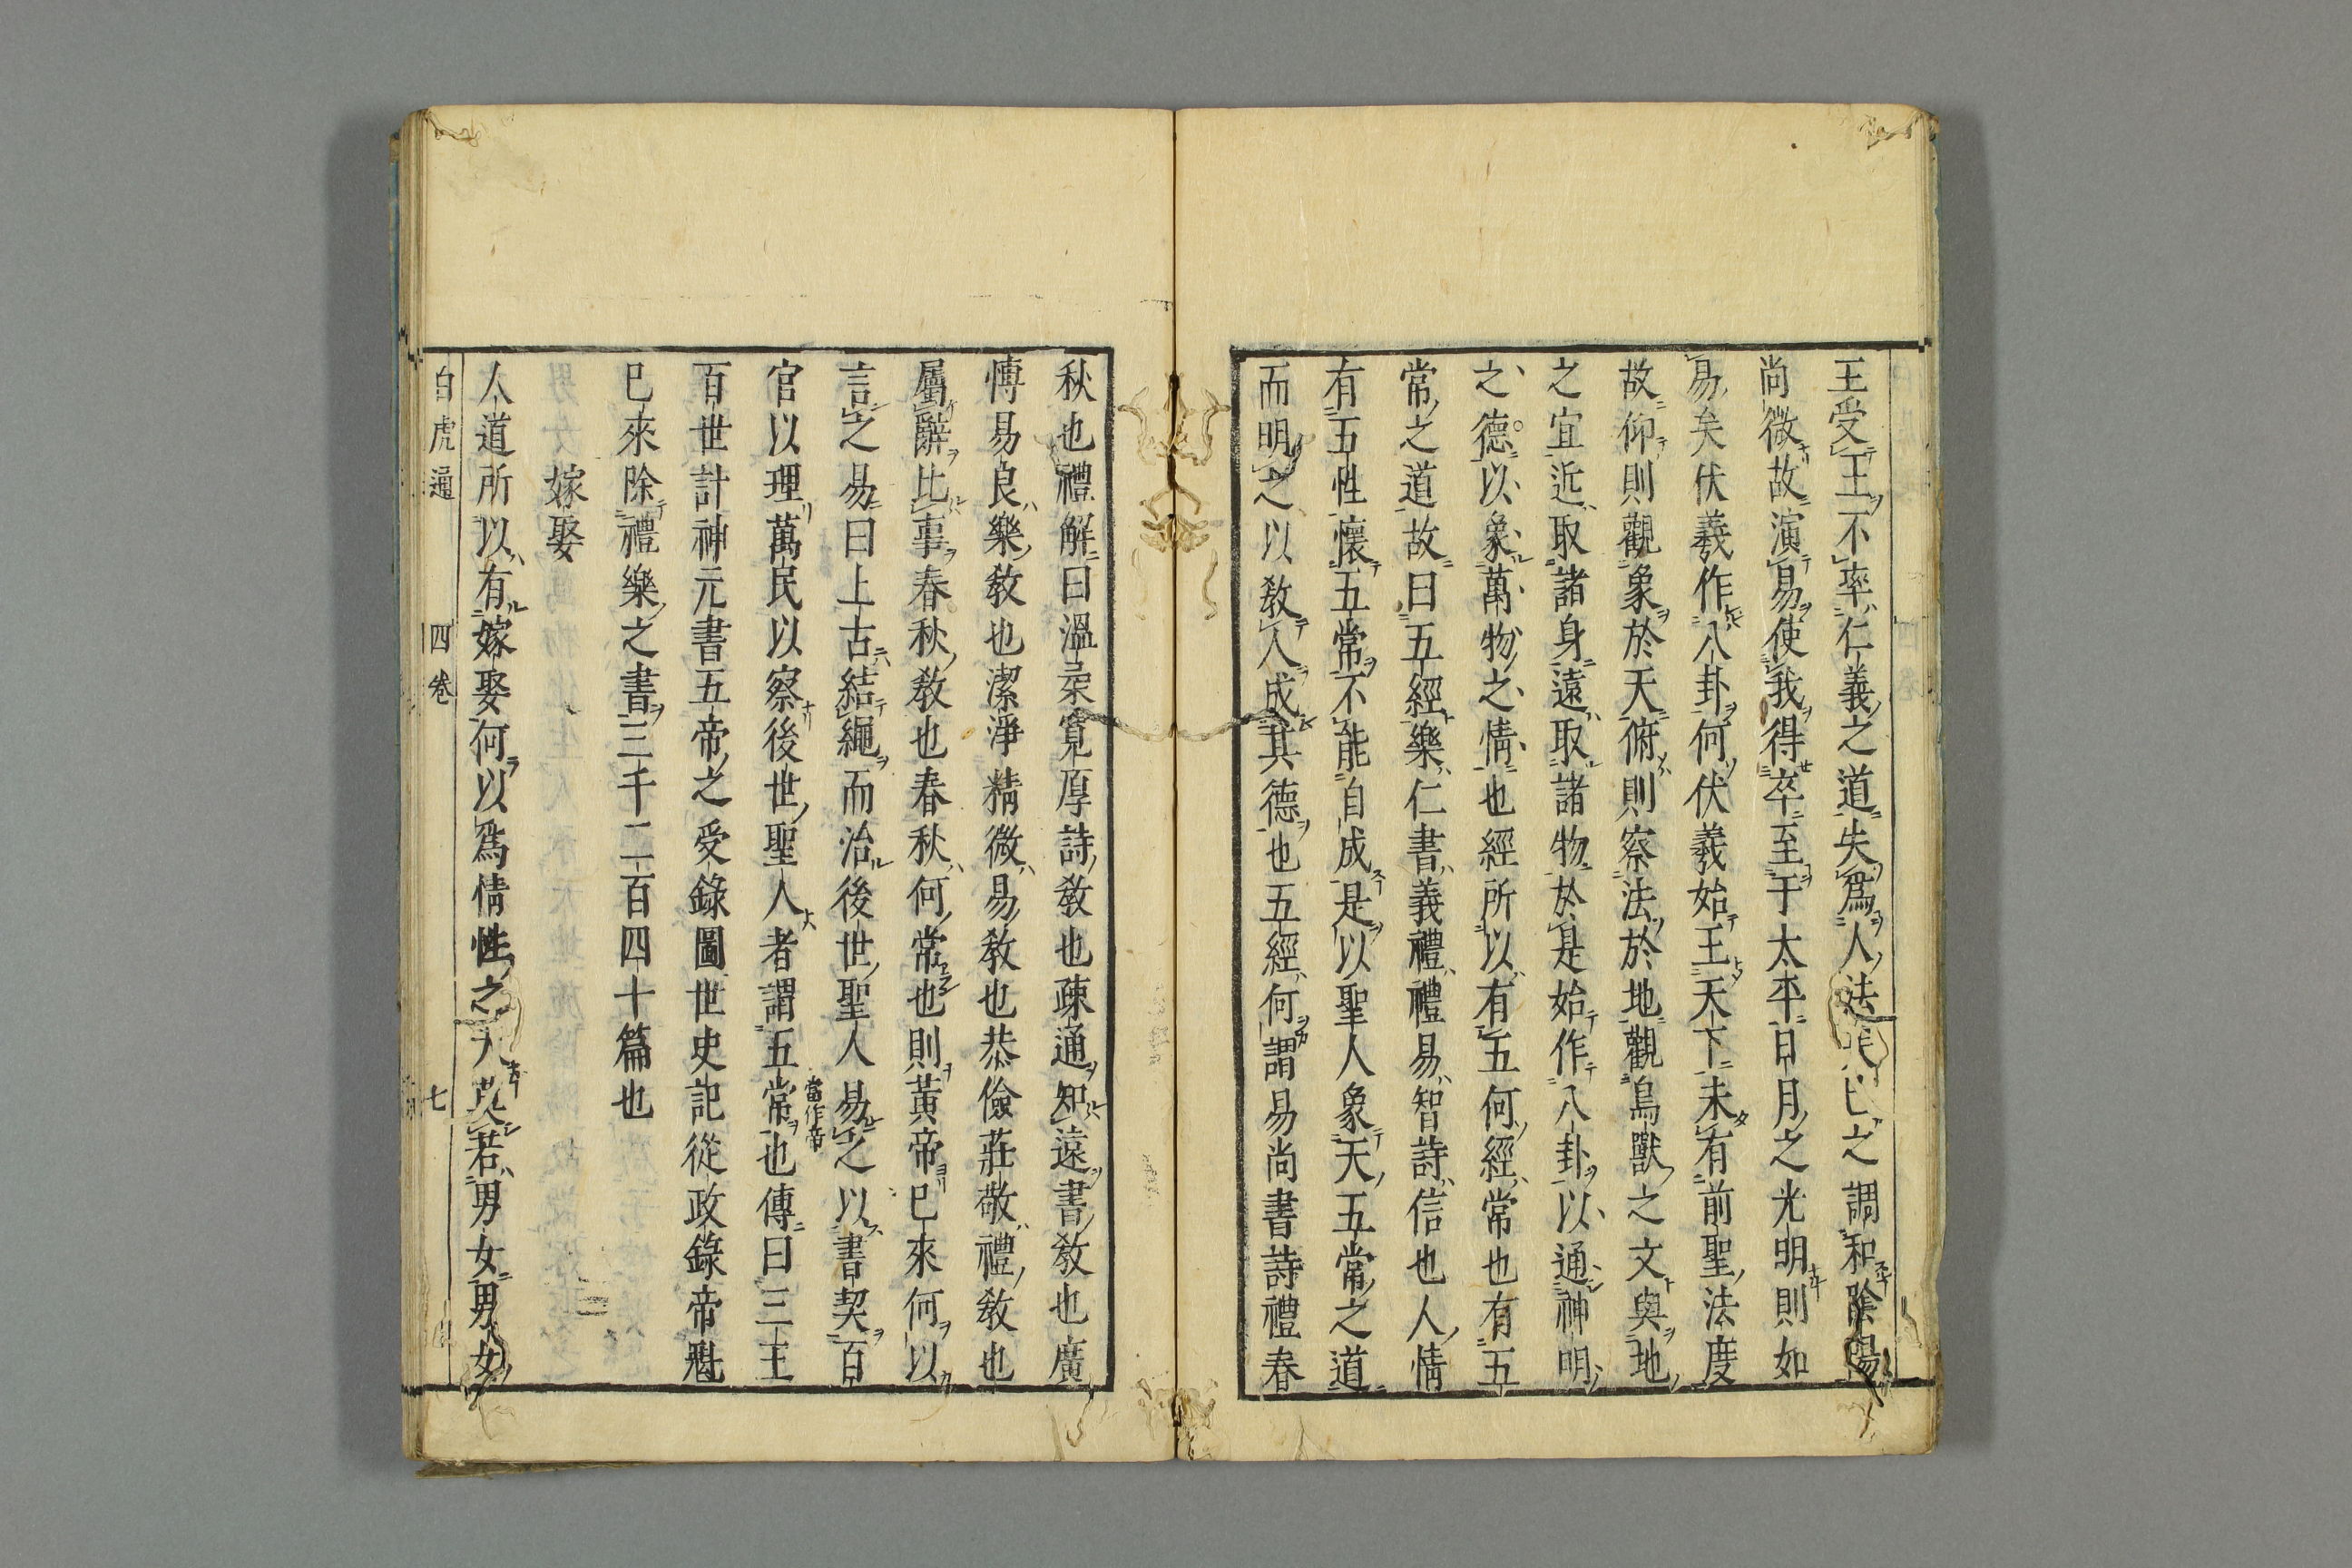 王受王不率仁義之道失爲人法矣己之調和陰陽
尚微故演易使我得卒至于太平日月之光明則如
易矣伏羲作八卦何伏羲始王天下未有前聖法度
故仰則觀象於天俯則察法於地觀鳥獸之文與地
之宜近取諸身遠取諸物於是始作八卦以通神明
之德以象萬物之情也經所以有五何經常也有五
常之道故曰五經樂仁書義禮禮易智詩信也人情
有五性懷五常不能自成是以聖人象天五常之道
而明之以教人成其德也五經何謂易尚書詩禮春
秋也禮解曰溫柔寬厚詩教也疎通知遠書教也廣
博易良樂教也潔淨精微易教也恭儉莊敬禮教也
屬辭比事春秋教也春秋何常也則黃帝已來何以
言之易曰上古結繩而治後世聖人易之以書契百
官以理萬民以察後世聖人者謂五常也傳曰三王
當作帝
百世計神元書五帝之受錄圖世史記從政錄帝魁
已來除禮樂之書三千二百四十篇也
嫁娶
人道所以有嫁娶何以爲情性之大莫若男女男女
白虎通 四卷 七